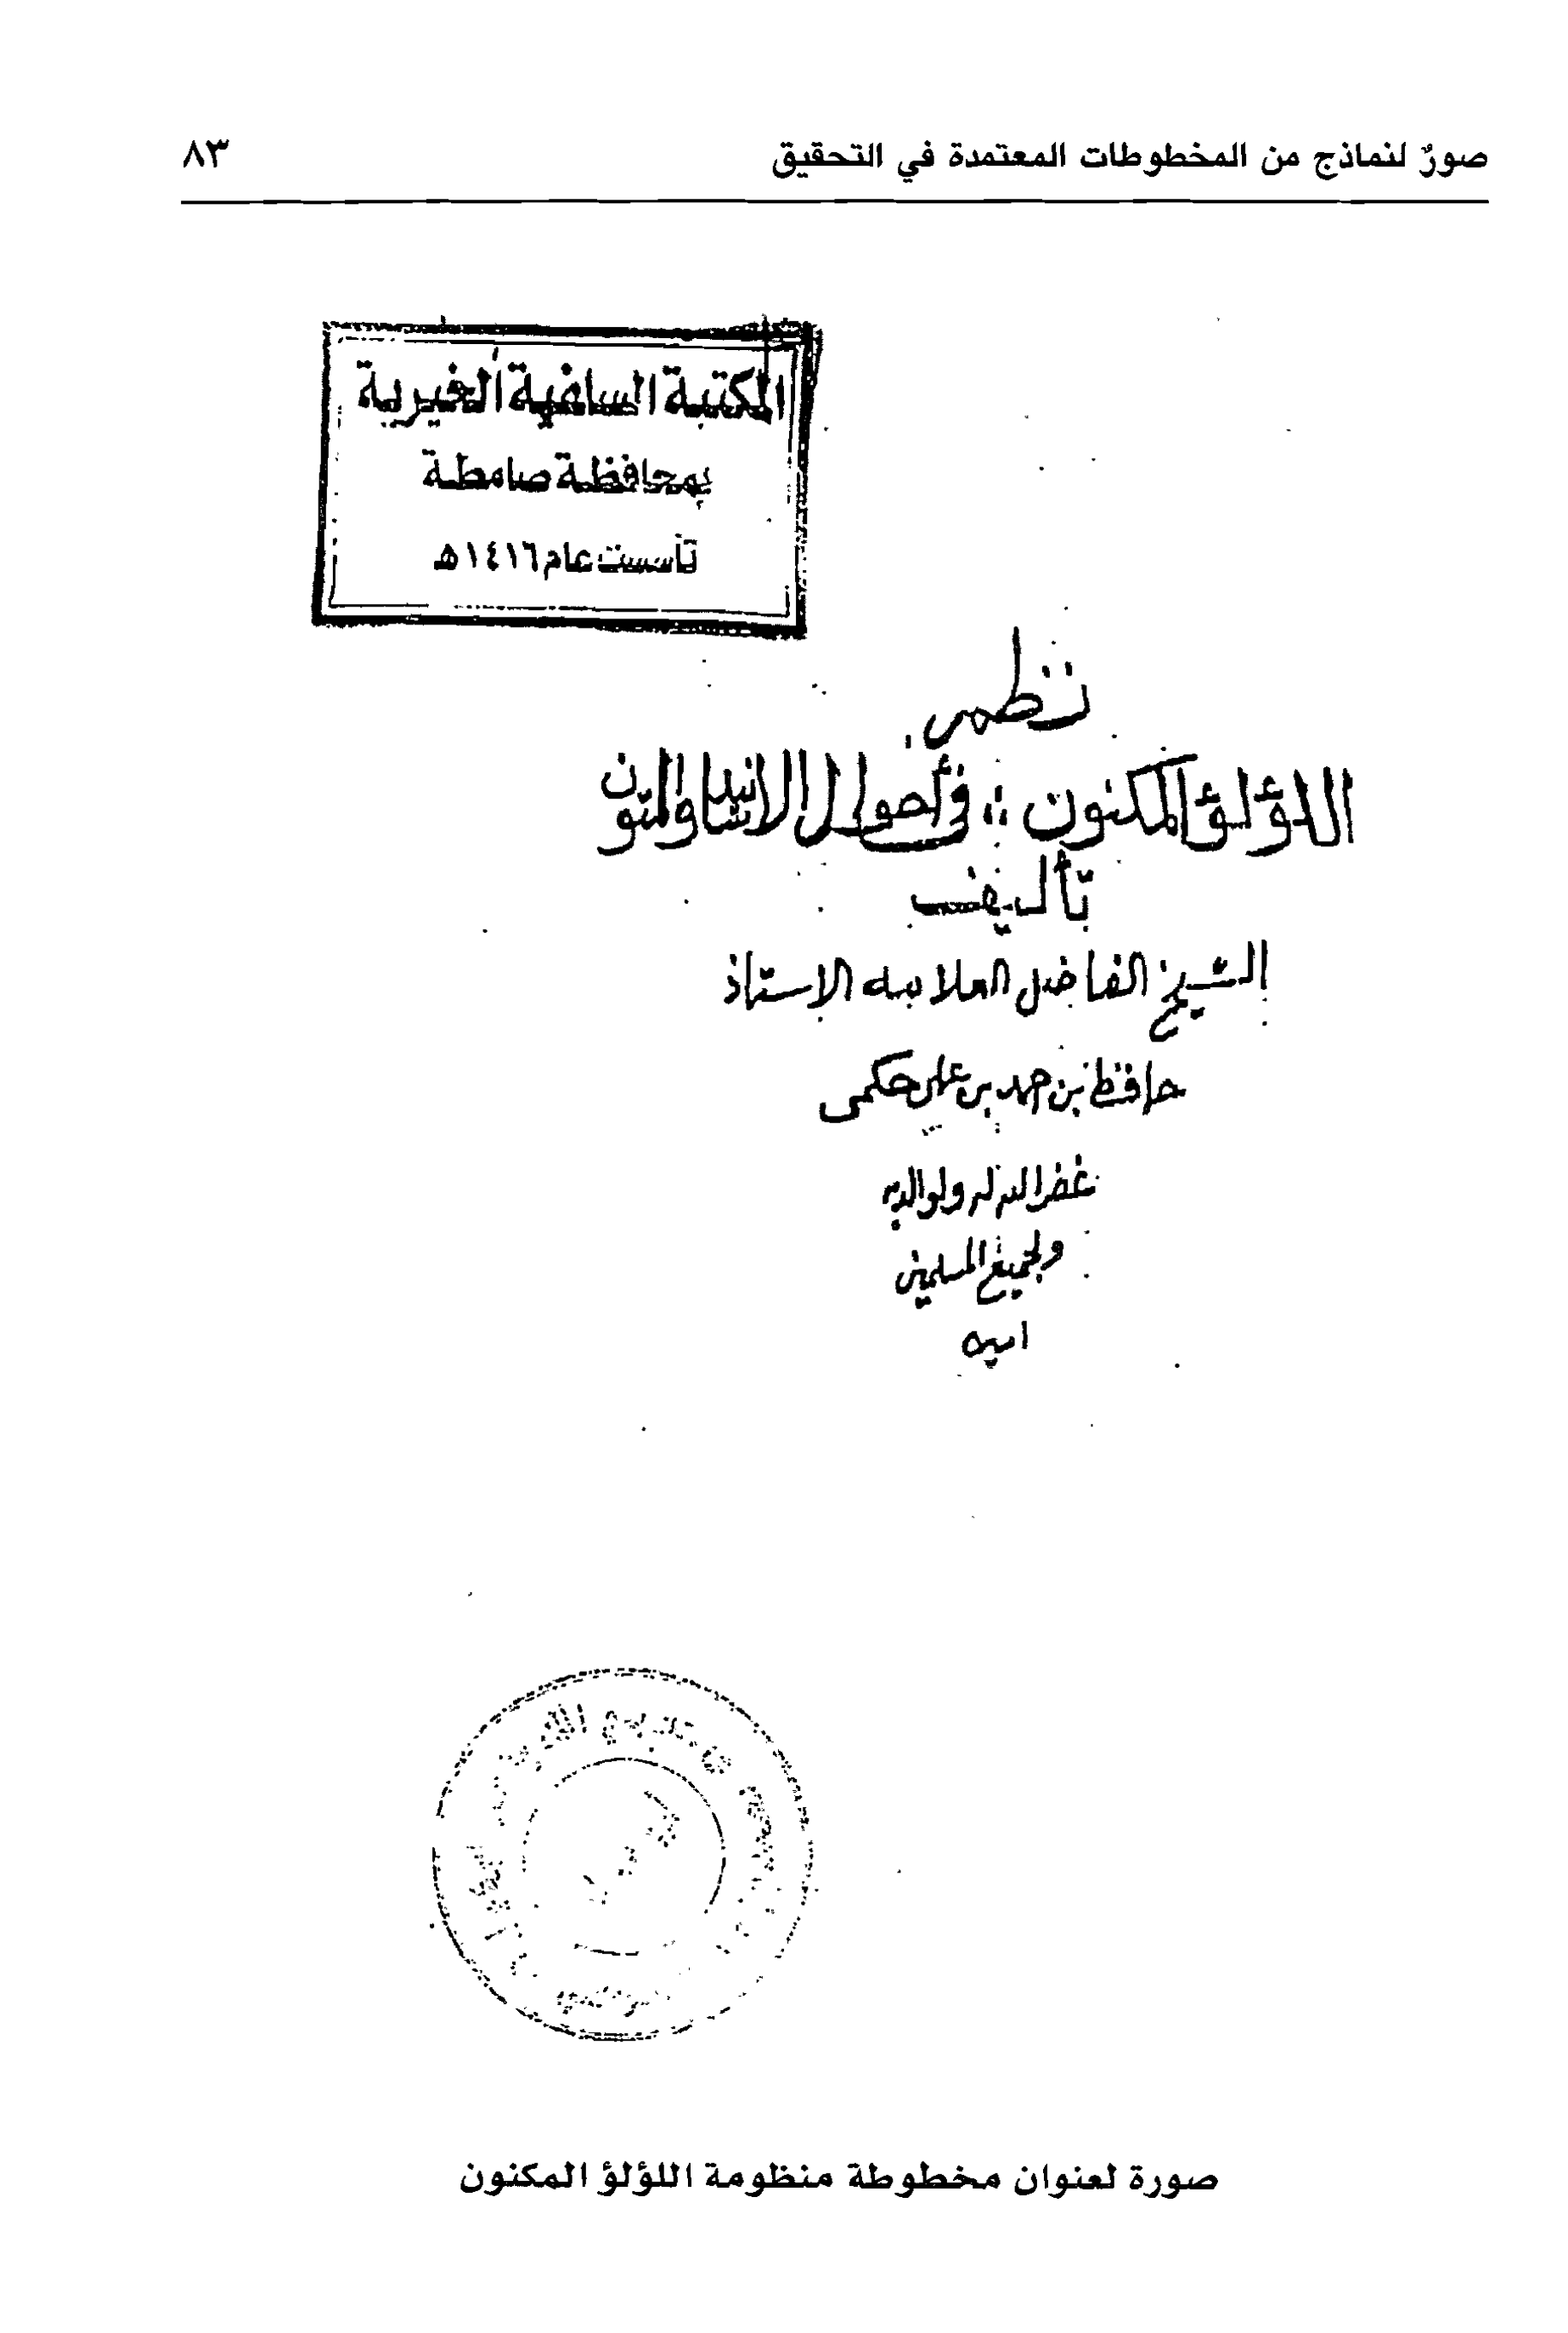 صورٌ لنماذج من المخطوطات المعتمدة في التحقيق ٨٣
المكتبة السلفية الخيرية
بمحافظة صامطة
تأسست عام ١٤١٦ هـ
نظم
اللؤلؤ المكنون في أحوال الاسانيد والمتون
تأليف
الشيخ الفاضل العلامه الاستاذ
حافظ بن احمد بن علي حكمى
غفر الله له ولوالديه
ولجميع المسلمين
امين
صورة لعنوان مخطوطة منظومة اللؤلؤ المكنون